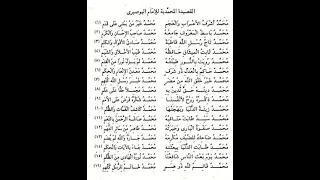 القصيدة المحمدية للإمام البوصيري
مُحَمَّدٌ أَشْرَفُ الأَعْرَابِ وَالعَجَمِ مُحَمَّدٌ خَيْرُ مَنْ يَمْشِي عَلَى قَدَمِ (١)
مُحَمَّدٌ بَاسِطُ المَعْرُوفِ جَامِعُهُ مُحَمَّدٌ صَاحِبُ الإِحْسَانِ وَالكَرَمِ (٢)
مُحَمَّدٌ تَاجُ رُسْلِ اللهِ قَاطِبَةً مُحَمَّدٌ صَادِقُ الأَقْوَالِ وَالكَلِمِ (٣)
مُحَمَّدٌ ثَابِتُ المِيثَاقِ حَافِظُهُ مُحَمَّدٌ طَيِّبُ الأَخْلَاقِ وَالشِّيَمِ (٤)
مُحَمَّدٌ رُوِيَتْ بِالنُّورِ طِينَتُهُ مُحَمَّدٌ لَمْ يَزَلْ نُورًا مِنَ القِدَمِ (٥)
مُحَمَّدٌ حَاكِمٌ بِالعَدْلِ ذُو شَرَفٍ مُحَمَّدٌ مَعْدِنُ الإِنْعَامِ وَالحِكَمِ (٦)
مُحَمَّدٌ خَيْرُ خَلْقِ اللهِ مِنْ مُضَرٍ مُحَمَّدٌ خَيْرُ رُسْلِ اللهِ كُلِّهِمِ (٧)
مُحَمَّدٌ دِينُهُ حَقٌّ نَدِينُ بِهِ مُحَمَّدٌ حَقًّا عَلَى عَلَمِ (٨)
مُحَمَّدٌ ذِكْرُهُ رُوحٌ لِأَنْفُسِنَا مُحَمَّدٌ شُكْرُهُ فَرْضٌ عَلَى الأُمَمِ (٩)
مُحَمَّدٌ زِينَةُ الدُّنْيَا وَبَهْجَتُهَا مُحَمَّدٌ كَاشِفُ الغُمَّاتِ وَالظُّلَمِ (١٠)
مُحَمَّدٌ سَيِّدٌ طَابَتْ مَنَاقِبُهُ مُحَمَّدٌ صَاغَهُ الرَّحْمٰنُ بِالنِّعَمِ (١١)
مُحَمَّدٌ صَفْوَةُ البَارِي وَخِيرَتُهُ مُحَمَّدٌ طَاهِرٌ مِنْ سَائِرِ التُّهَمِ (١٢)
مُحَمَّدٌ ضَاحِكٌ لِلضَّيْفِ مُكْرِمُهُ مُحَمَّدٌ جَارُهُ وَاللهِ لَمْ يُضَمِ (١٣)
مُحَمَّدٌ طَابَتِ الدُّنْيَا بِبِعْثَتِهِ مُحَمَّدٌ جَاءَ بِالآيَاتِ وَالحِكَمِ (١٤)
مُحَمَّدٌ يَوْمَ بَعْثِ النَّاسِ شَافِعُنَا مُحَمَّدٌ نُورُهُ الهَادِي مِنَ الظُّلَمِ (١٥)
مُحَمَّدٌ قَائِمٌ لِلهِ ذُو هِمَمٍ مُحَمَّدٌ خَاتَمٌ لِلرُّسْلِ كُلِّهِمِ (١٦)